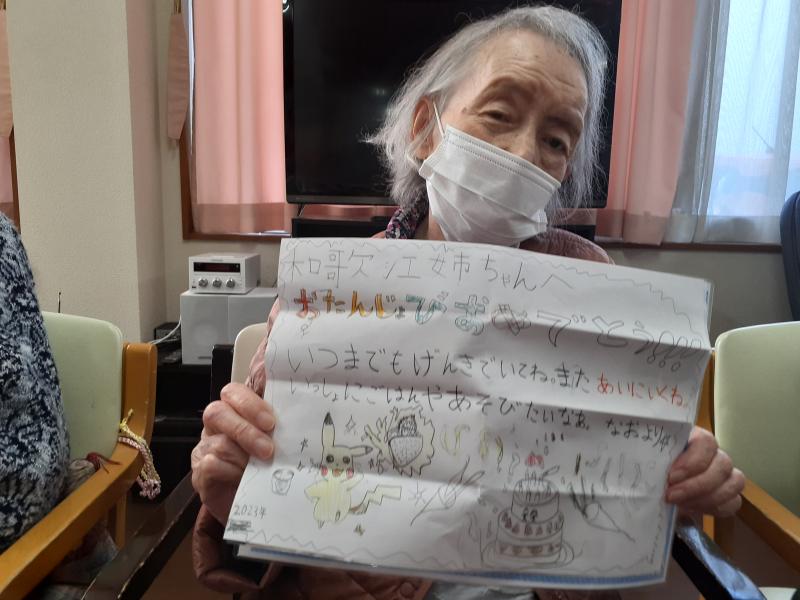 和歌江姉ちゃんへ
おたんじょびおめでとう!!!
いつまでもげんきでいてね。また あいにいくね。
いっしょにごはんやあそびたいなあ。 なおより
2023年